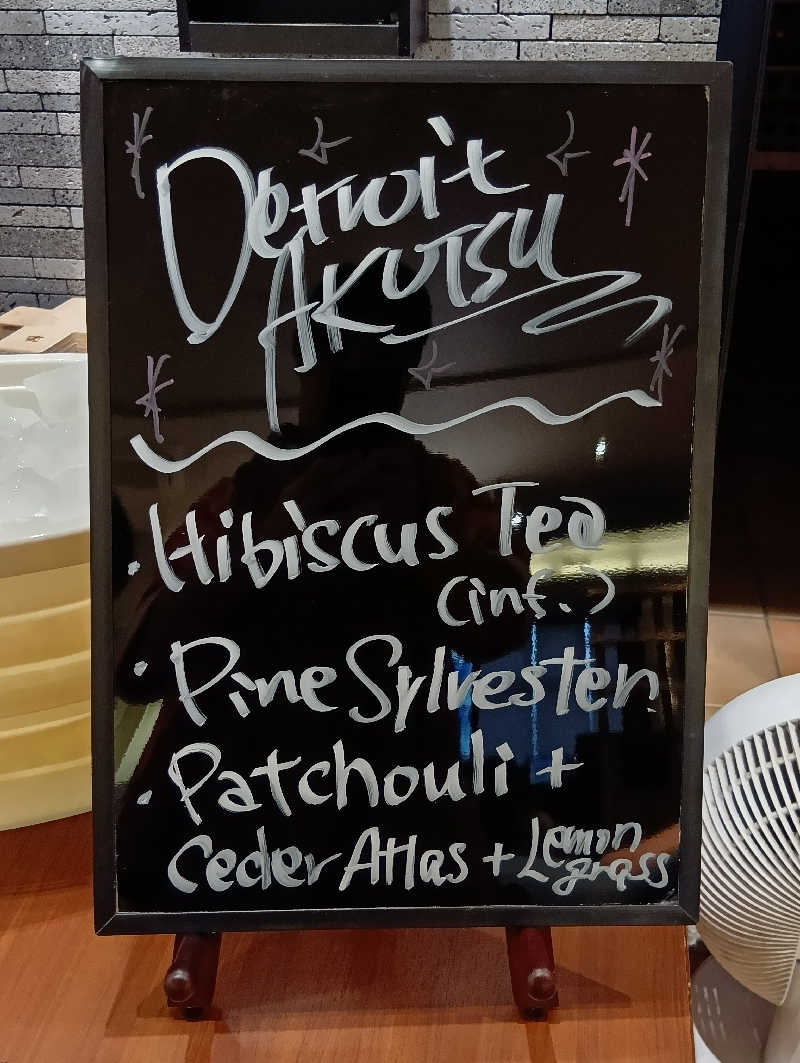 Detroit
AKUTSU
・Hibiscus Tea
(inf.)
・Pine Sylvester
・Patchouli +
Ceder Atlas + Lemon
grass